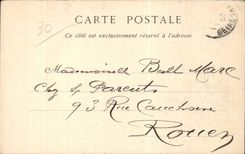 30
CARTE POSTALE
Ce côté est exclusivement réservé à l'adresse
Mademoiselle Barb Marc
Chez ses Parents
93 Rue Cauchoise
Rouen